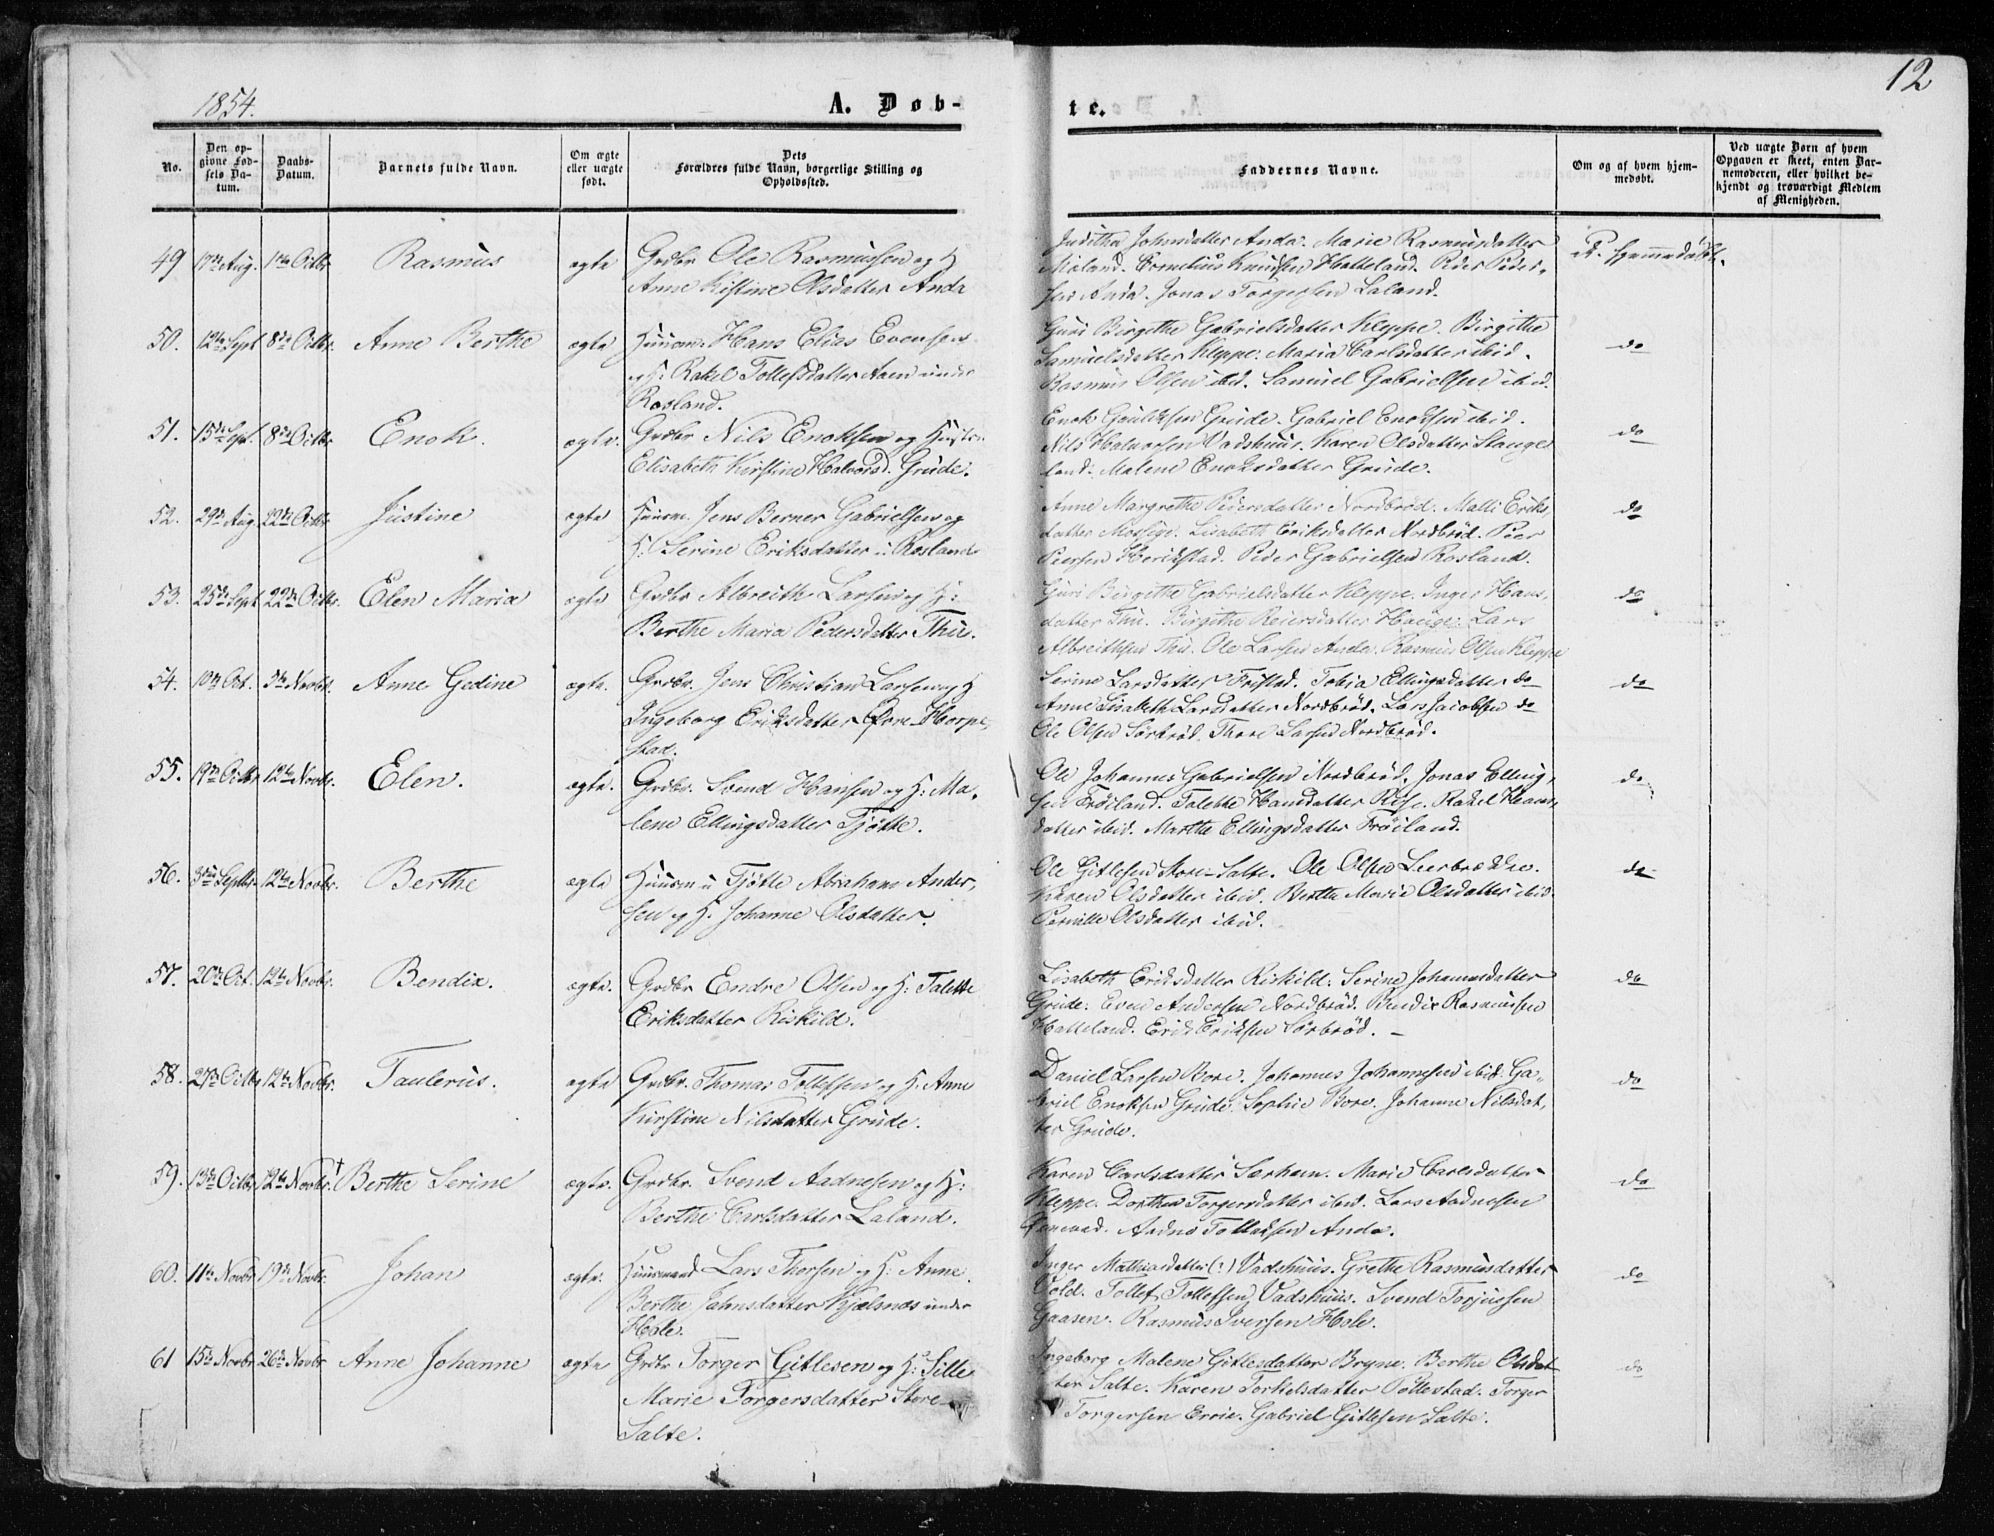 1854.
A. Døb-
te.
12
No.
Den op-
givne Fød-
sels Da-
tum.
Daabs-
Datum.
Barnets fulde Navn.
Om ægte
eller uægte
født.
Dets
Forældres fulde Navn, borgerlige Stilling og
Opholdssted.
Faddernes Navne.
Om og af hvem hjem-
medøbt.
Ved uægte Børn af hvem
Opgaven er skeet, enten Bar-
nemoderen, eller hvilket be-
kjendt og troværdigt Medlem
af Menigheden.
49 17de Aug. 1ste Octbr Rasmus ægte Grdbr Ole Rasmussen og H
Anne Kistine Olsdatter Anda
Juditha Johnsdatter Anda. Marie Rasmusdatter
Mæland. Cornelius Knudsen Hatteland. Peder Peder-
sen Anda. Jonas Torgersen Laland.
P. hjemmedøbt.
50. 12te Sept 8de Octbr. Anne Berthe ægte Huusm: Hans Elias Evensen
og H: Rakel Tollefsdatter Aaen under
Rosland.
Guri Birgithe Gabrielsdatter Kleppe. Birgithe
Samuelsdatter Kleppe: Maria Carlsdatter ibid.
Rasmus Olsen ibid. Samuel Gabrielsen ibid.
do
51. 15de Sept. 8de Octbr Enok. ægte. Grdbr Nils Enoksen og Hustru
Elisabeth Kirstine Halvorsd. Grude.
Enok Grude. Gabriel Enoksen ibid.
Nils Halvorsen Vadshuus. Karen Olsdatter Stange-
land. Malene Enoksdatter Grude.
do
52. 29de Aug. 22de Octbr Justine ægte Huusm. Jens Berner Gabrielsen og
H: Serine Eriksdatter i Rosland
Anne Margrethe Pedersdatter Nordbrød. Malli Eriks
datter Mossige. Lisabeth Eriksdatter Nordbrød. Peer
Peersen Herikstad. Peder Gabrielsen Rosland.
do
53. 25de Sept 22de Octbr. Elen Maria ægte Grdbr Albreith Larsen og H:
Berthe Maria Pedersdatter Thu.
Guri Birgitte Gabrielsdatter Kleppe. Inger Hans,
datter Thu. Birgithe Reiersdatter Hauge. Lars
Albreithsen Thu. Ole Larsen Anda. Rasmus Olsen Kleppe
do
54. 10de Oct. 5te Novbr. Anne Gedine ægte. Grdbr. Jens Christian Larsen og H
Ingeborg Eriksdatter Øvre-Horpe,
stad.
Serine Larsdatter Fristad. Tobia Ellingsdatter do
Anne Lisabeth Larsdatter Nordbrød. Lars Jacobsen do
Ole Olsen Sørbrød. Thore Larsen Nordbrød.
do
55. 19de Octbr 12te Novbr. Elen. ægte. Grdbr. Svend Hansen og H: Ma,
lene Ellingsdatter Tjøtte.
Ole Johannes Gabrielsen Nordbrød. Jonas Elling,
sen Frøiland. Talette Hansdatter Rise. Rakel Hans,
datter ibid. Marthe Ellingsdatter Frøiland.
do
56. Septbr. 12te Novbr. Berthe ægte Huusm u Tjøtte Abraham Ander,
sen og H. Johanne Olsdatter.
Ole Gitlesen Store-Salte. Ole Olsen Leerbrække.
Karen Olsdatter ibid. Berthe Marie Olsdatter ibid.
Pernille Olsdatter ibid.
do
57. 20de Oct. 12te Novbr. Bendix. ægte. Grdbr Endre Olsen og H: Talette
Eriksdatter Riskild.
Lisabeth Eriksdatter Riskild. Serine Johannesdatter
Grude. Even Andersen Nordbrød. Bendix Rasmussen
Hatteland. Erik Eriksen Sørbrød. –
do
58. 27de Octbr 12te Novbr. Taulerus. ægte Grdbr. Thomas Tollefsen og H. Anne
Kirstine Nilsdatter Grude.
Daniel Larsen Bore. Johannes Johannesen ibid. Ga,,
briel Enoksen Grude. Sophie Bore. Johanne Nilsdat,
ter Grude.
do
59. 13de Octbr 12te Novbr. † Berthe Serine ægte. Grdbr. Svend Aadnesen og H:
Berthe Carlsdatter Laland.
Karen Carlsdatter Særheim. Marie Carlsdatter
Kleppe. Dorthea Torgersdatter ibid. Lars Aadnesen
Aadne Tollefsen Anda.
do
60. 11te Novbr 19de Novbr. Johan ægte. Huusmand Lars Thorsen og H: Anne
Berthe Jahnsdatter Kjælsnæs under
Hole.
Inger Mathiasdatter (!) Vadshuus. Grethe Rasmusdatter
Vold. Tollef Tollefsen Vadshuus. Svend Torjussen
Gaasen. Rasmus Iversen Hole.
do
61 15de Novbr 26de Novbr Anne Johanne ægte Grdbr Torger Gitlesen og H: Sille
Marie Torgersdatter Store-
Salte.
Ingeborg Malene Gitlesdatter Bryne. Berthe Olsdat
ter Salte. Karen Torkelsdatter Pollestad. Torger
Torgersen Ervie. Gabriel Gitlesen Salte.
do